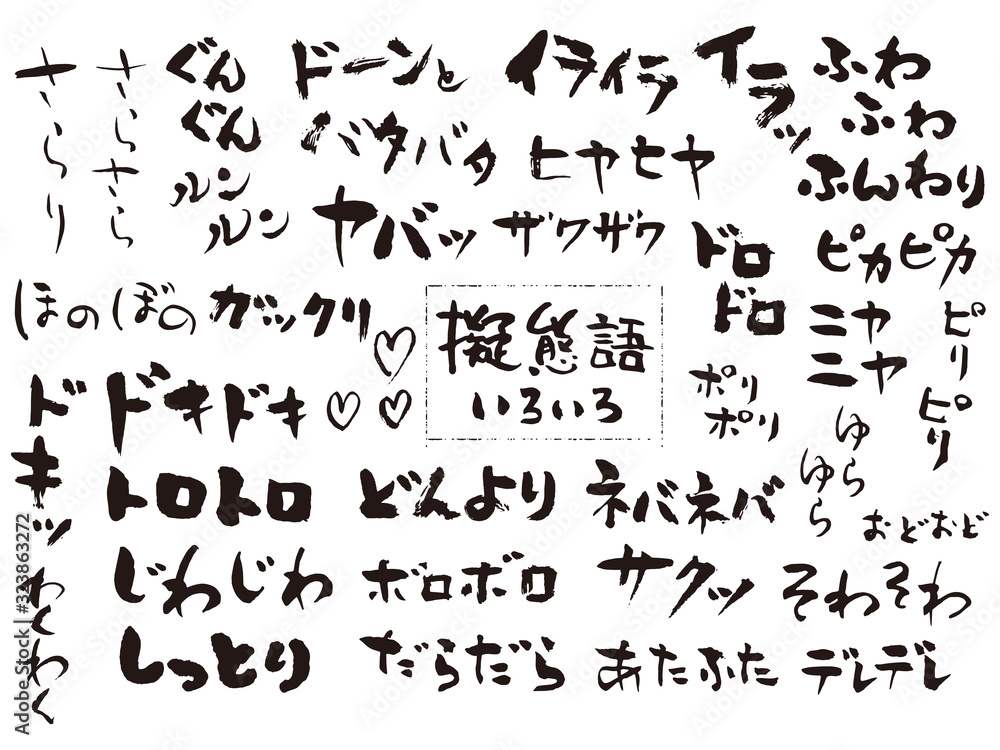 さらり
さらさら
ぐんぐん
ルンルン
ドーンと
イライラ
イラッ
ふわふわ
バタバタ
ヒヤヒヤ
ふんわり
ヤバッ
ザワザワ
ドロドロ
ピカピカ
ほのぼの
ガックリ
擬態語
いろいろ
ニヤニヤ
ピリピリ
ポリポリ
ドキッ
ドキドキ
ゆらゆら
トロトロ
どんより
ネバネバ
おどおど
わくわく
じわじわ
ボロボロ
サクッ
そわそわ
しっとり
だらだら
あたふた
デレデレ
Adobe Stock | #333863272
Adobe Stock